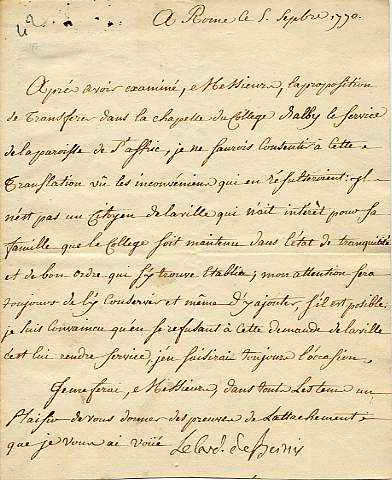 A Rome le 5. Septbre 1770.
Aprés avoir examiné, Messieurs, la proposition
de Transferer dans la chapelle du College d'alby le service
de la paroisse de St affric, je ne saurois Consentir à cette
Translation vû les inconveniens qui en resulteroient: il
n'est pas un Citoyen de la ville qui n'ait interêt pour sa
famille que le College soit maintenu dans l'état de tranquilité
et de bon ordre qui s'y trouve Etablie; mon attention sera
toujours de l'y Conserver et même d'y ajouter, s'il est possible.
je suis Convaincu qu'en se refusant à cette demande de la ville
c'est lui rendre service, j'en saisirai toujours l'occasion.
Je me ferai, Messieurs, dans tous les tems un
Plaisir de vous donner des preuves de l'attachement
que je vous ai voüé Le Card. de Bernis